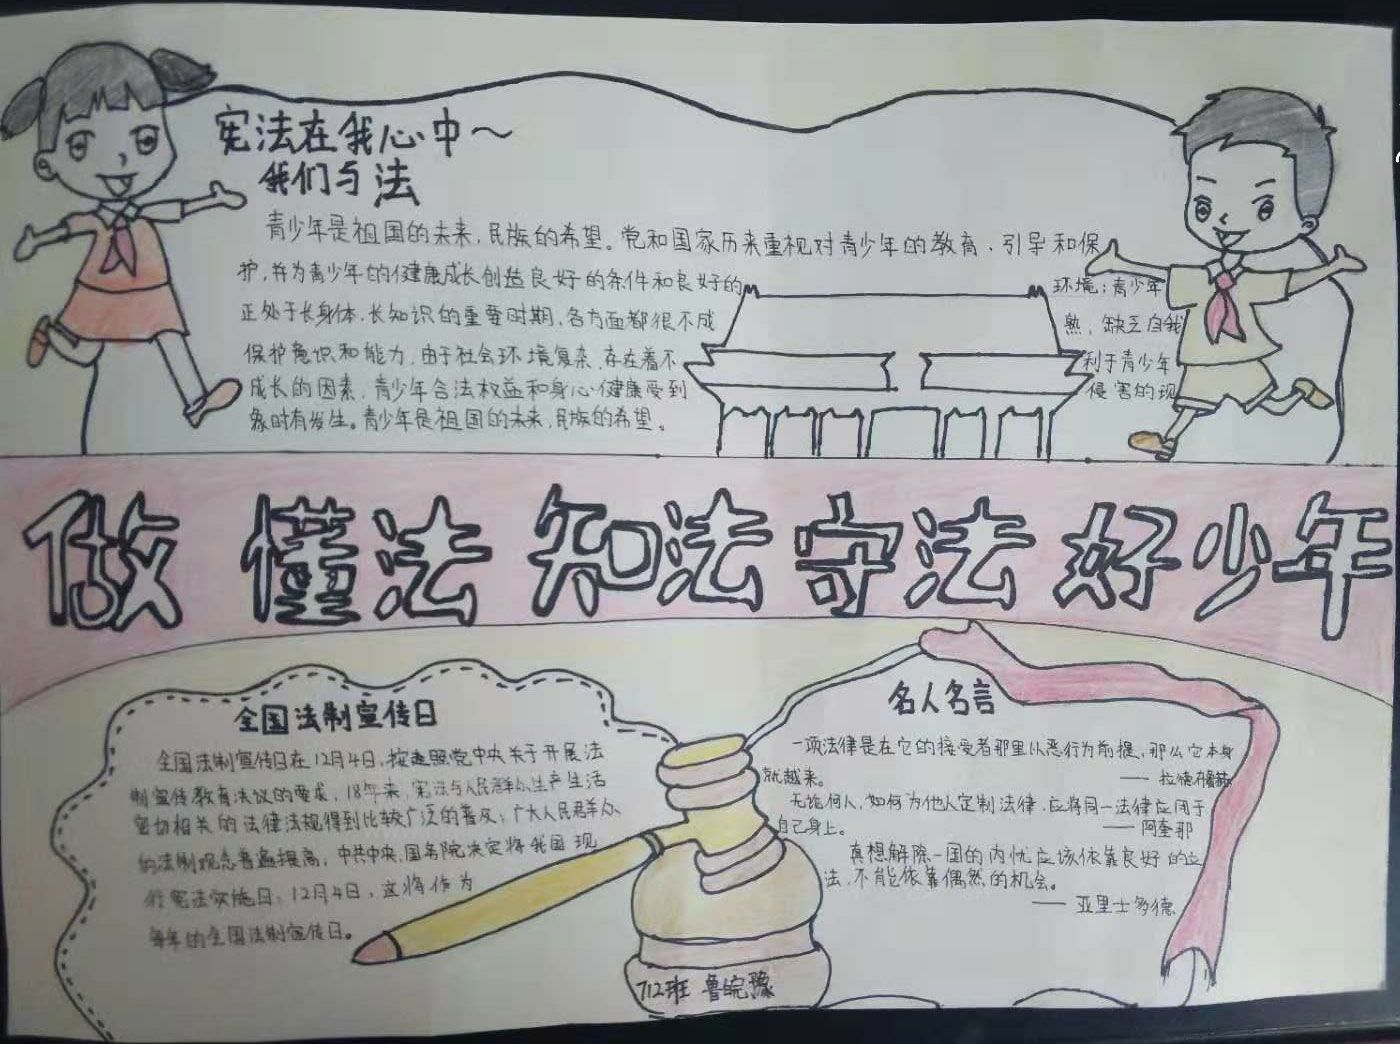 宪法在我心中~
我们与法
青少年是祖国的未来,民族的希望。党和国家历来重视对青少年的教育、引导和保
护,并为青少年的健康成长创造良好的条件和良好的环境;青少年
正处于长身体,长知识的重要时期,各方面都很不成熟,缺乏自我
保护意识和能力,由于社会环境复杂,存在着不利于青少年
成长的因素,青少年合法权益和身心健康受到侵害的现
象时有发生。青少年是祖国的未来,民族的希望。
做懂法知法守法好少年
全国法制宣传日
全国法制宣传日在12月4日,按照党中央关于开展法
制宣传教育决议的要求,18年来,宪法与人民群众生产生活
密切相关的法律法规得到比较广泛的普及;广大人民群众
的法制观念普遍提高,中共中央,国务院决定将我国现
行宪法实施日:12月4日,这将作为
每年的全国法制宣传日。
名人名言
一项法律是在它的接受者那里以恶行为前提,那么它本身
就越来。
—— 拉德布赫
无论何人,如何为他人定制法律,应将同一法律应用于
自己身上。
—— 阿奎那
真想解除一国的内忧应该依靠良好的立
法,不能依靠偶然的机会。
—— 亚里士多德
712班 鲁皖豫